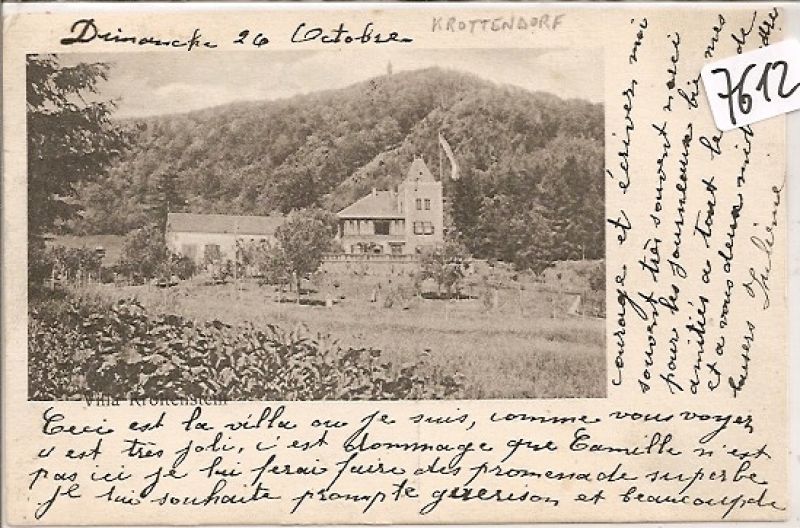 Dimanche 26 Octobre
KROTTENDORF
7612
Villa Krottenstein
Ceci est la villa ou je suis, comme vous voyez
c'est très joli, c'est dommage que Camille n'est
pas ici je lui ferai faire des promenade superbe
Je lui souhaite prompte guerison et beaucoup de
courage et écrivez moi
souvent très souvent merci
pour les journeaux bie mes
amitiés a tout le de
et a vous deux mil
baisers Julienne